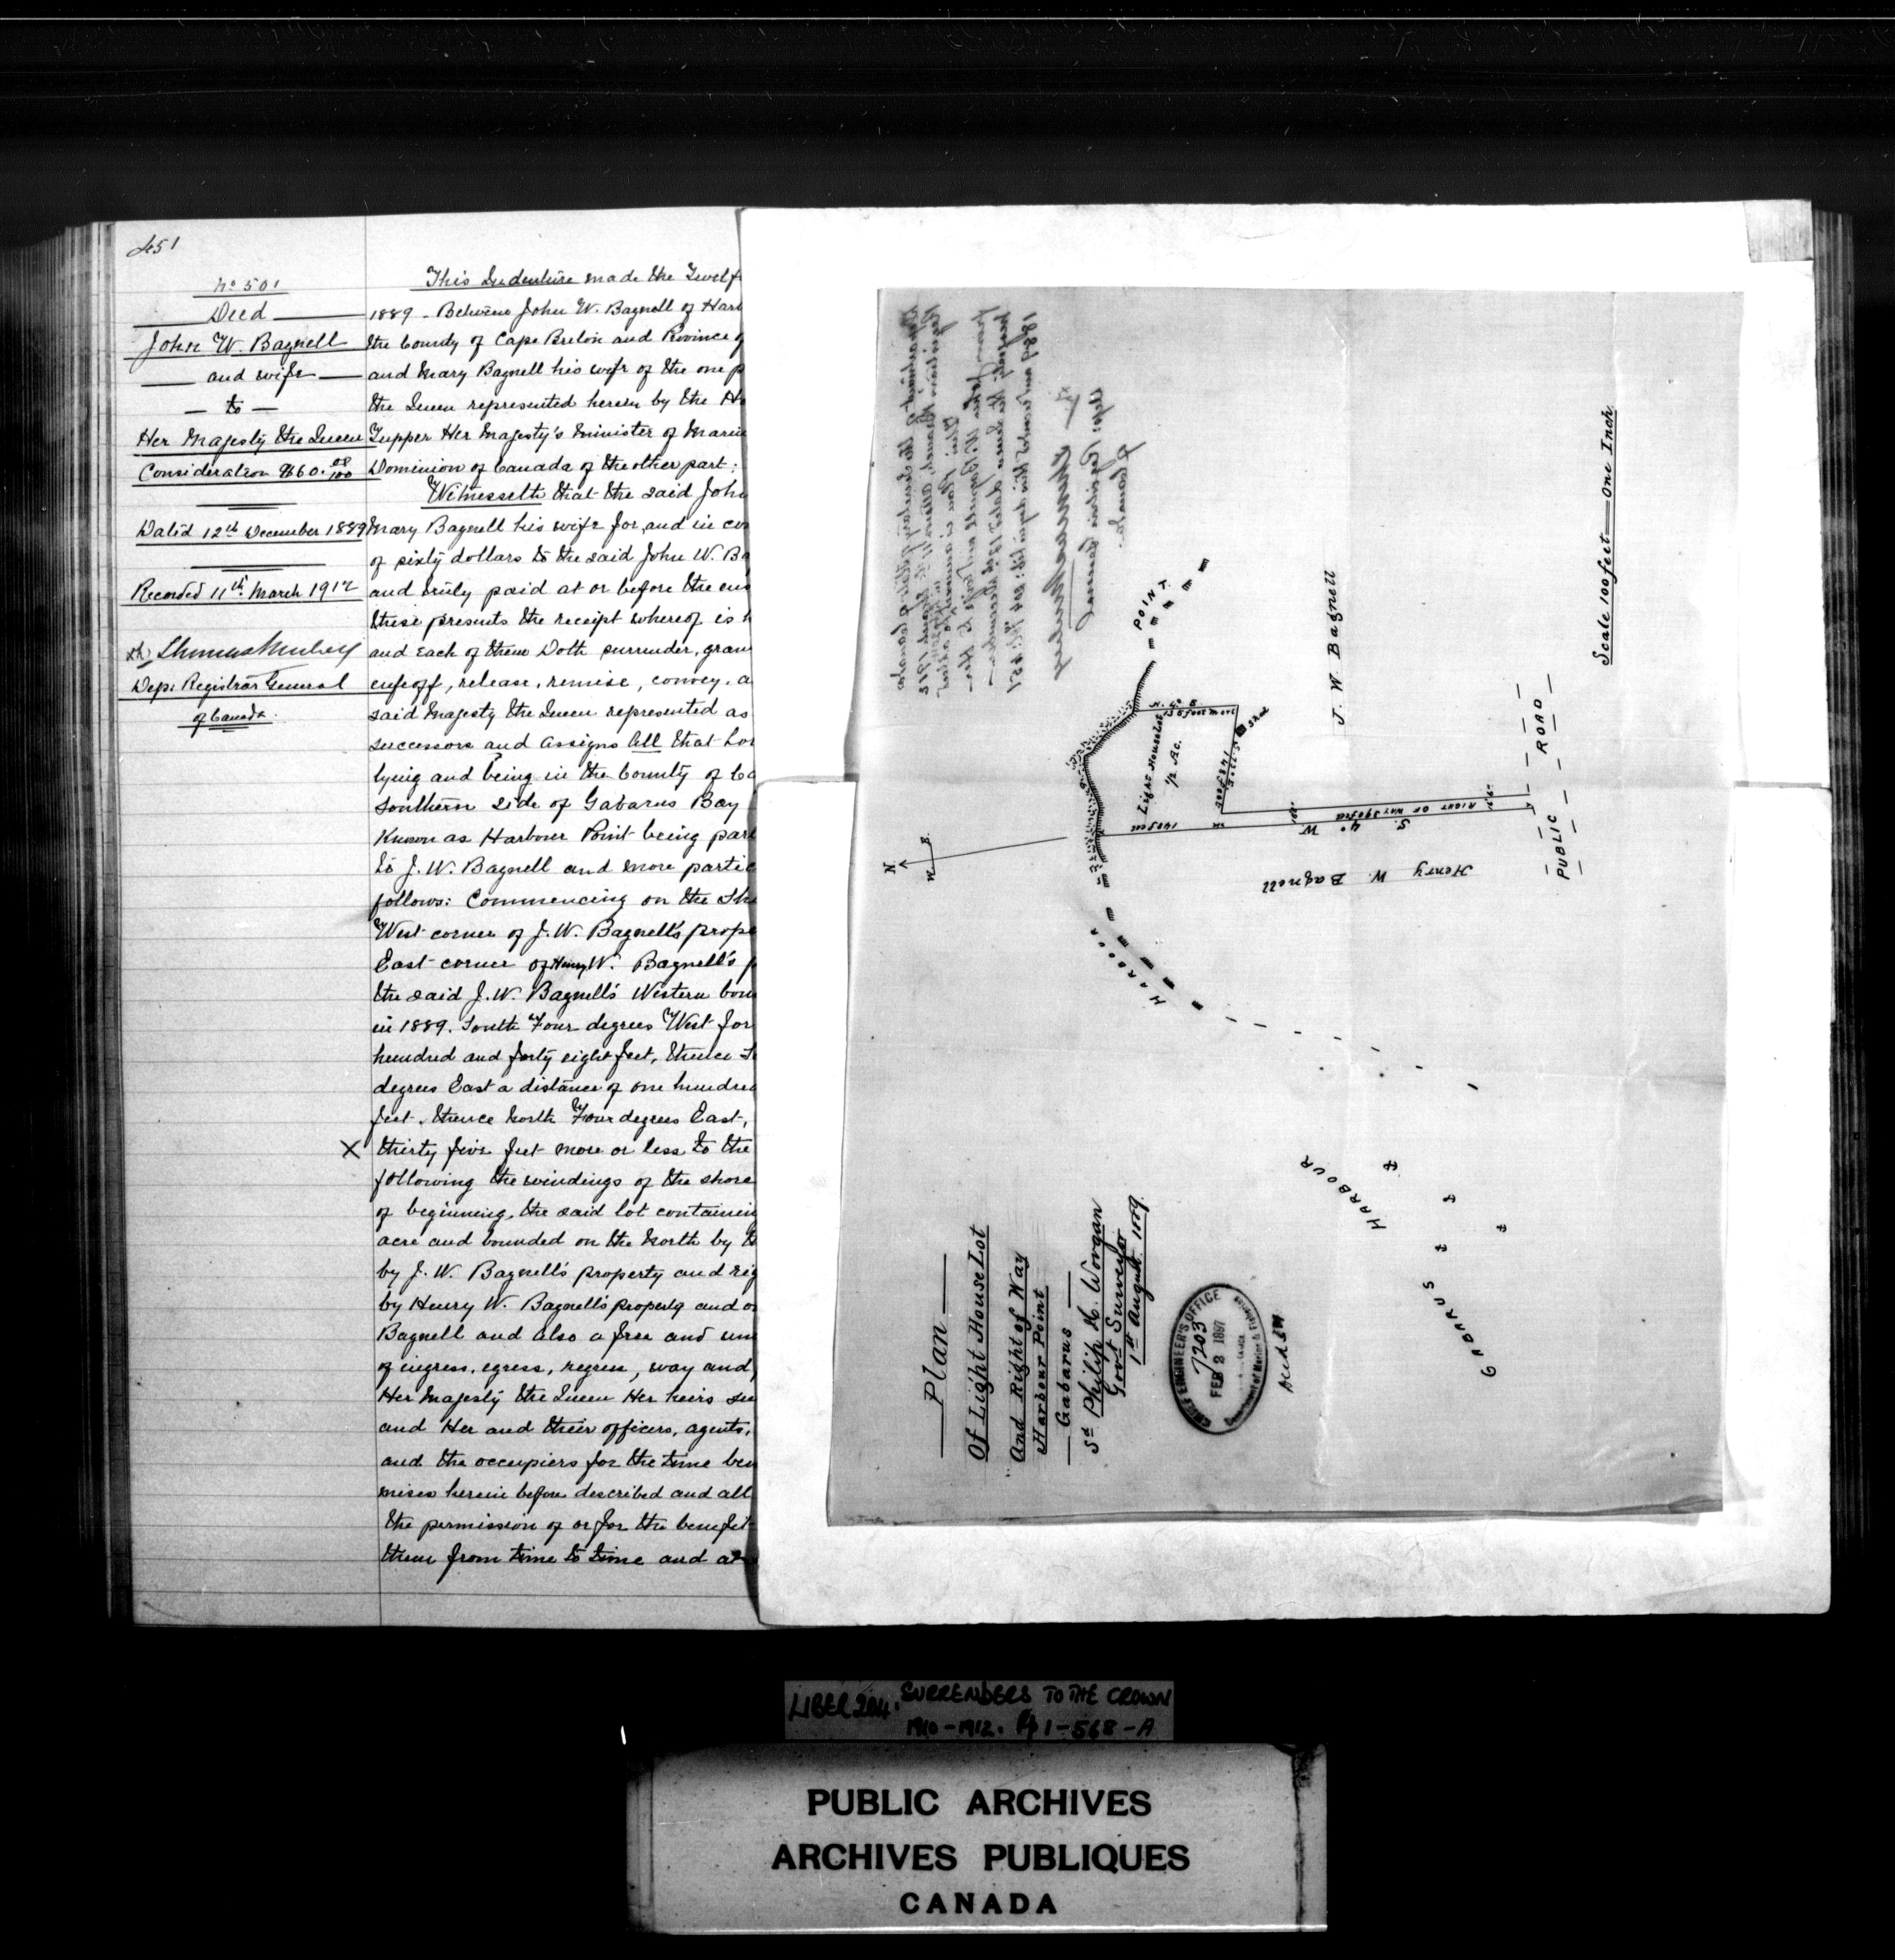 451
No 501
Deed
John W. Bagnell
and wife
to
Her Majesty the Queen
Consideration $60.00/100
Dated 12th December 1889
Recorded 11th March 1912
Dep: Registrar General
of Canada.
This Indenture made the Twelf
1889 - Between John W. Bagnell of Harb
the County of Cape Breton and Province of
and Mary Bagnell his wife of the one p
the Queen represented herein by the Ho
Tupper Her Majesty's Minister of Marin
Dominion of Canada of the other part:
Witnesseth that the said John
Mary Bagnell his wife for and in con
of sixty dollars to the said John W. Ba
and truly paid at or before the ens
these presents the receipt whereof is h
and each of them Doth surrender, gran
enfeoff, release, remise, convey, a
said Majesty the Queen represented as
successors and assigns All that Lot
lying and being in the County of Ca
Southern side of Gabarus Bay
Known as Harbour Point being part
to J. W. Bagnell and more partic
follows: Commencing on the Sho
West corner of J. W. Bagnell's prope
East corner of Henry W. Bagnell's p
the said J. W. Bagnell's Western boun
in 1889. South Four degrees West for
hundred and forty eight feet, thence S
degrees East a distance of one hundred
feet. thence North Four degrees East,
X thirty five feet more or less to the
following the windings of the shore
of beginning, the said lot containing
acre and bounded on the North by t
by J. W. Bagnell's property and rig
by Henry W. Bagnell's property and on
Bagnell and also a free and un
of ingress, egress, regress, way and
Her Majesty the Queen Her heirs suc
and Her and their officers, agents,
and the occupiers for the time bei
mises herein before described and all
the permission of or for the benefit
them from time to time and at
Plan
Of Light House Lot
And Right of Way
Harbour Point
Gabarus
Sd Philip H. Worgan
Govt Surveyor
1st August 1889.
CHIEF ENGINEER'S OFFICE
7203
FEB 2 1897
Department of Marine & Fisheries
N
W E
HARBOUR
POINT.
Light House Lot
1/2 Ac.
148 feet
Shed
RIGHT OF WAY 390 feet
S. 4° W
Henry W. Bagnell
J. W Bagnell
PUBLIC ROAD
GABARUS HARBOUR
Scale 100 feet — One Inch
Dep: Registrar General
of Canada.
LIBER 204. SURRENDERS TO THE CROWN
1910-1912. Pp 1-568-A
PUBLIC ARCHIVES
ARCHIVES PUBLIQUES
CANADA